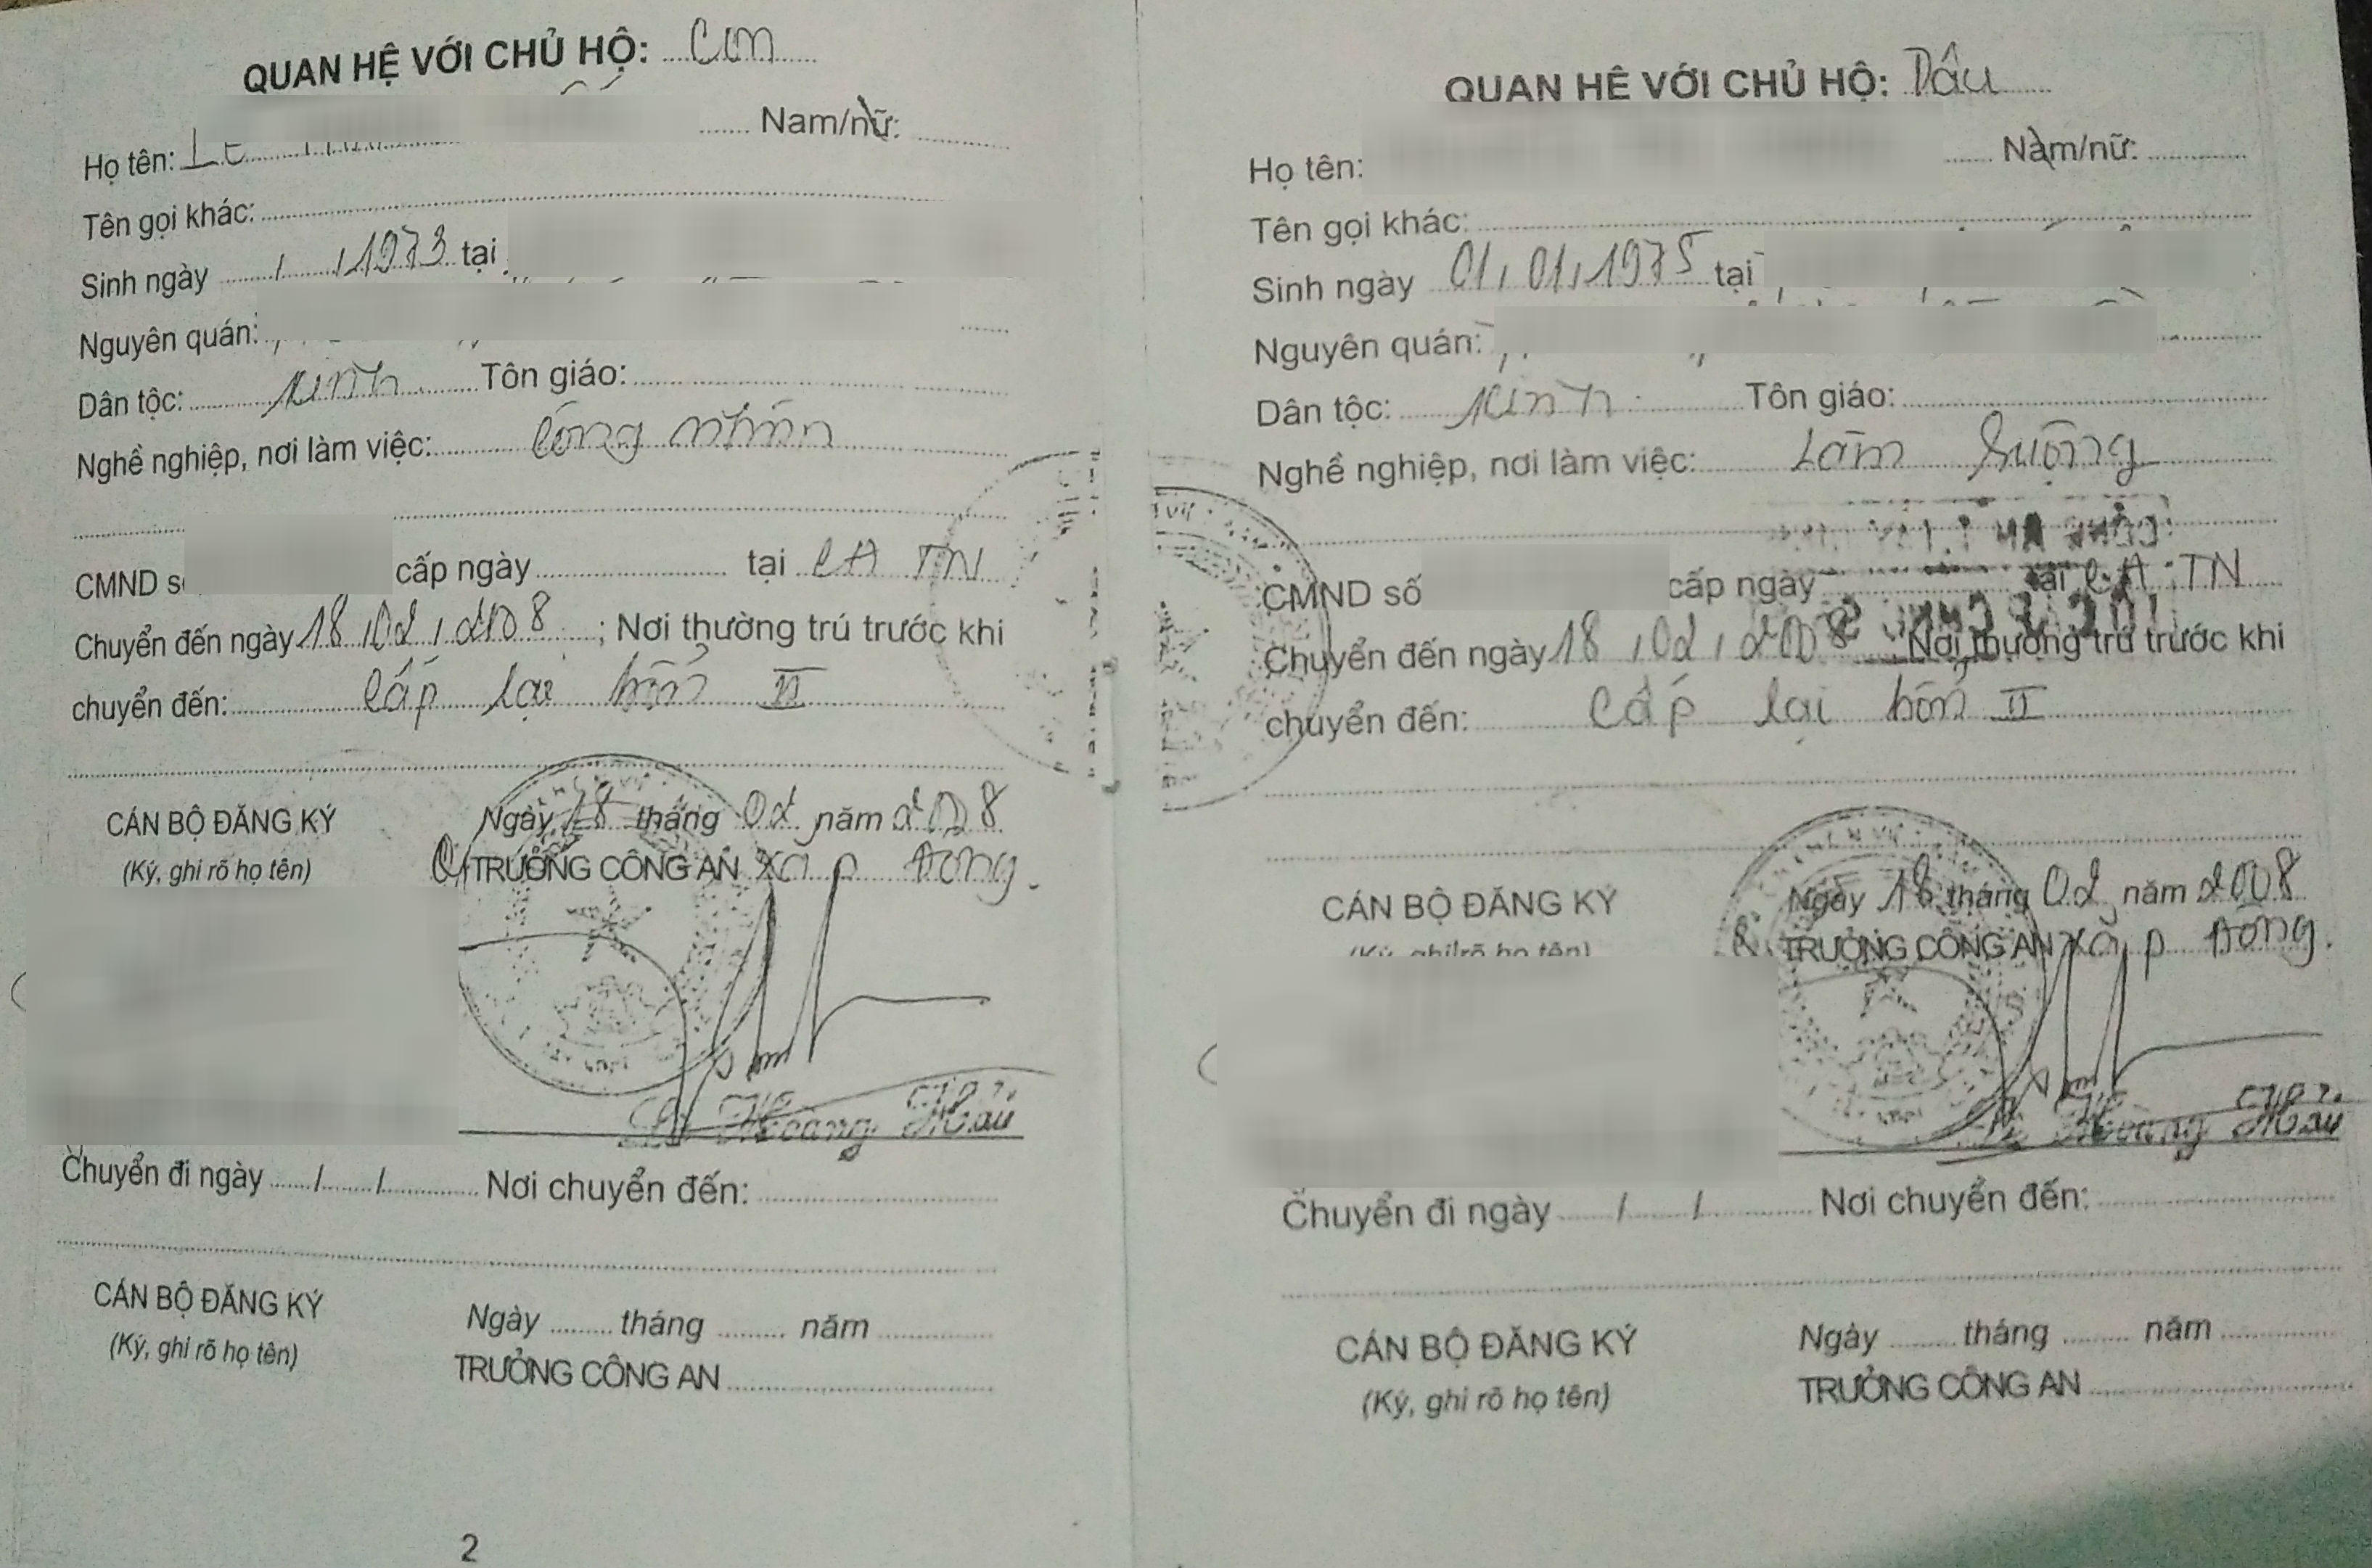 QUAN HỆ VỚI CHỦ HỘ: Con
Họ tên: Lê Nam/nữ:
Tên gọi khác:
Sinh ngày / / 1973 tại
Nguyên quán:
Dân tộc: Kinh Tôn giáo:
Nghề nghiệp, nơi làm việc: Công nhân
CMND số cấp ngày tại CA TN
Chuyển đến ngày 18, 02, 2008; Nơi thường trú trước khi
chuyển đến: Cấp lại bổn II
CÁN BỘ ĐĂNG KÝ
(Ký, ghi rõ họ tên)
Ngày 18 tháng 02 năm 2008
TRƯỞNG CÔNG AN xã P Đông.
Lê Hoàng Hải
Chuyển đi ngày / / Nơi chuyển đến:
CÁN BỘ ĐĂNG KÝ
(Ký, ghi rõ họ tên)
Ngày tháng năm
TRƯỞNG CÔNG AN
2
QUAN HỆ VỚI CHỦ HỘ: Dâu
Họ tên: Nam/nữ:
Tên gọi khác:
Sinh ngày 01, 01, 1975 tại
Nguyên quán:
Dân tộc: Kinh Tôn giáo:
Nghề nghiệp, nơi làm việc: Làm ruộng
CMND số cấp ngày tại CA TN
Chuyển đến ngày 18, 02, 2008 Nơi thường trú trước khi
chuyển đến: Cấp lại bổn II
CÁN BỘ ĐĂNG KÝ
(Ký, ghi rõ họ tên)
Ngày 18 tháng 02 năm 2008
TRƯỞNG CÔNG AN xã P Đông.
Lê Hoàng Hải
Chuyển đi ngày / / Nơi chuyển đến:
CÁN BỘ ĐĂNG KÝ
(Ký, ghi rõ họ tên)
Ngày tháng năm
TRƯỞNG CÔNG AN